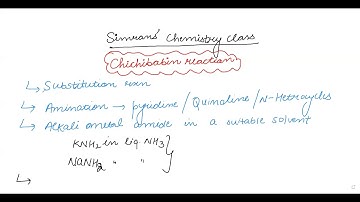 Simrans' Chemistry class
Chichibabin reaction
↳ Substitution rxn
↳ Amination → pyridine / Quinoline / N-Hetrocycles
↳ Alkali metal amide in a suitable solvent
KNH2 in liq NH3
NaNH2 " "
↳